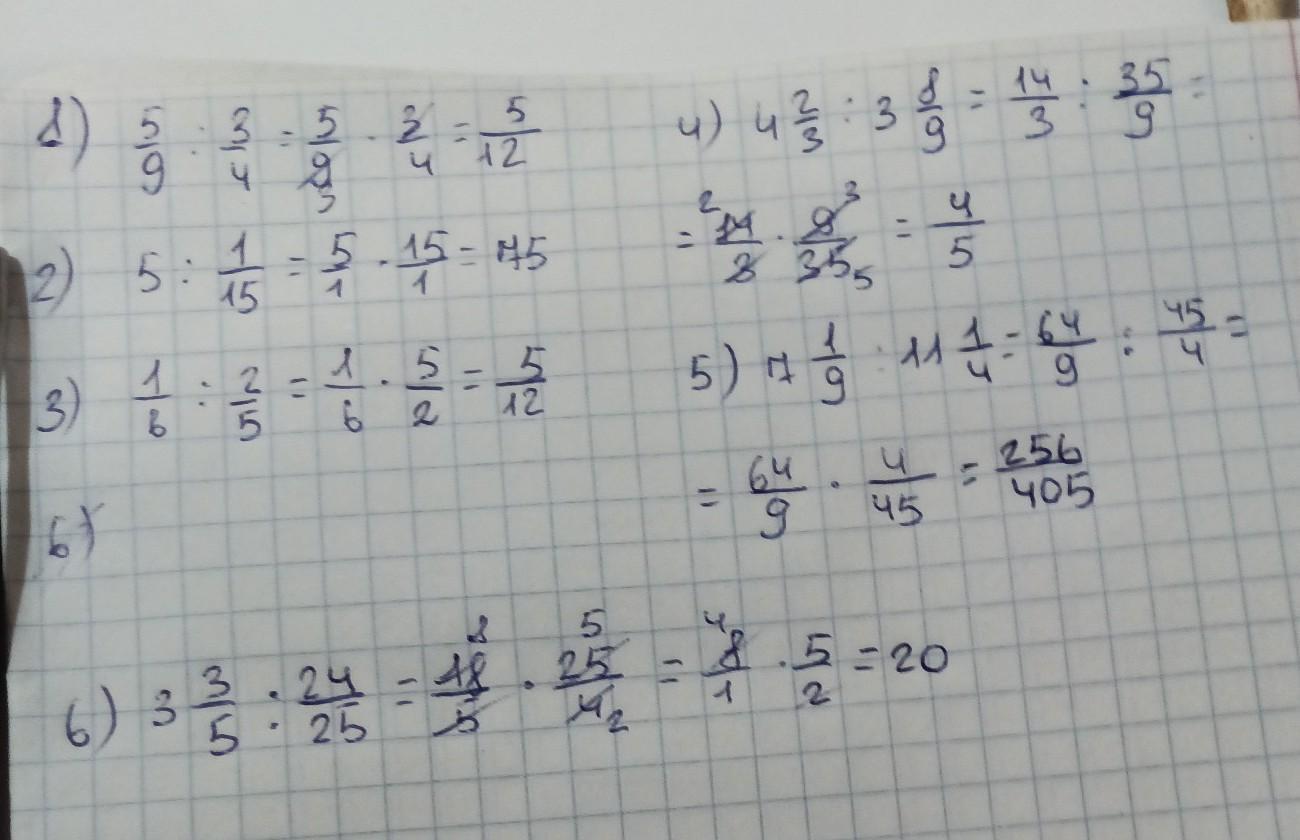 1) 5/9 : 3/4 = 5/9 3 · 3/4 = 5/12
2) 5 : 1/15 = 5/1 · 15/1 = 75
3) 1/6 : 2/5 = 1/6 · 5/2 = 5/12
6)
4) 4 2/3 : 3 8/9 = 14/3 : 35/9 =
= 2 14/3 · 9 3/35 5 = 4/5
5) 7 1/9 : 11 1/4 = 64/9 : 45/4 =
= 64/9 · 4/45 = 256/405
6) 3 3/5 : 24/25 = 8 18/5 · 5 25/4 2 = 4 8/1 · 5/2 = 20